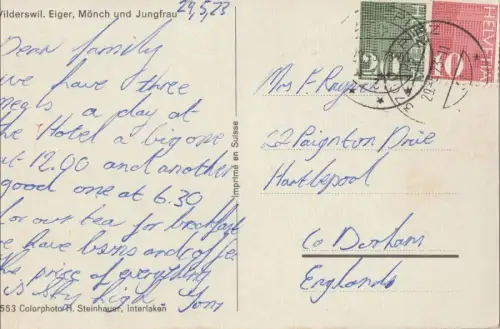 Wilderswil. Eiger, Mönch und Jungfrau
29,5,23
Dear family
we have three
meals a day at
the Hotel a big one
at 12.00 and another
good one at 6.30
for our tea for breakfast
we have buns and coffee
the price of everything
is sky high Tom
553 Colorphoto H. Steinhauer, Interlaken
Imprimé en Suisse
HELVETIA
Mrs F
22 Paignton Drie
Hartlepool
Co Durham
England